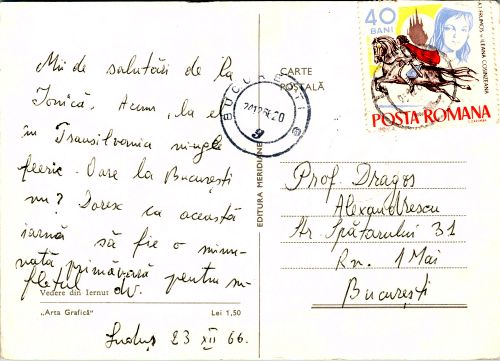 Mii de salutări de la
Ionică. Acum, la e
în Transilvania ninge
feeric. Oare la București
nu? Doresc ca această
iarnă să fie o minu-
nată primăvară pentru su-
fletul dv.
Vedere din Iernut
„Arta Grafică”
Lei 1,50
Luduș 23 XII 66.
EDITURA MERIDIANE
CARTE
POȘTALĂ
BUCUREȘTI
9
40
BANI
FĂT FRUMOS și ILEANA COSINZEANA
POSTA ROMANA
Prof. Dragoș
Alexandrescu
Str. Spătarului 31
Rn. 1 Mai
București